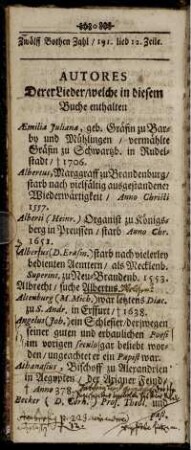 Zwölff Bothen Zahl / 191. lied 12. Zeile.
AUTORES
Derer Lieder / welche in diesem
Buche enthalten
Æmilia Juliana, geb. Gräfin zu Bar-
by und Mühlingen / vermählte
Gräfin zu Schwartzb. in Rudel-
stadt / † 1706.
Albertus, Marggraff zu Brandenburg /
starb nach vielfältig ausgestandener
Wiederwärtigkeit / Anno Christi
1557.
Alberti (Heinr.) Organist zu Königs-
berg in Preussen / starb Anno Chr.
1651.
Albertus (D. Erasm.) starb nach vielerley
bedienten Aemtern / als Mecklenb.
Superint. zu Neu-Brandenb. 1553.
Albrecht / suche Albertus.
Altenburg (M. Mich.) war letztens Diac.
zu S. Andr. in Erffurt / † 1638.
Angelus (Joh.) ein Schlesier / der wegen
seiner guten und erbaulichen Poesi
im vorigen seculo gar beliebt wor-
den / ungeachtet er ein Papist war.
Athanasius, Bischoff zu Alexandrien
in Aegypten / der Arianer Feind /
Anno 378.
Becker (D. Corn.) Prof. Theol. und
Past.
p. 223